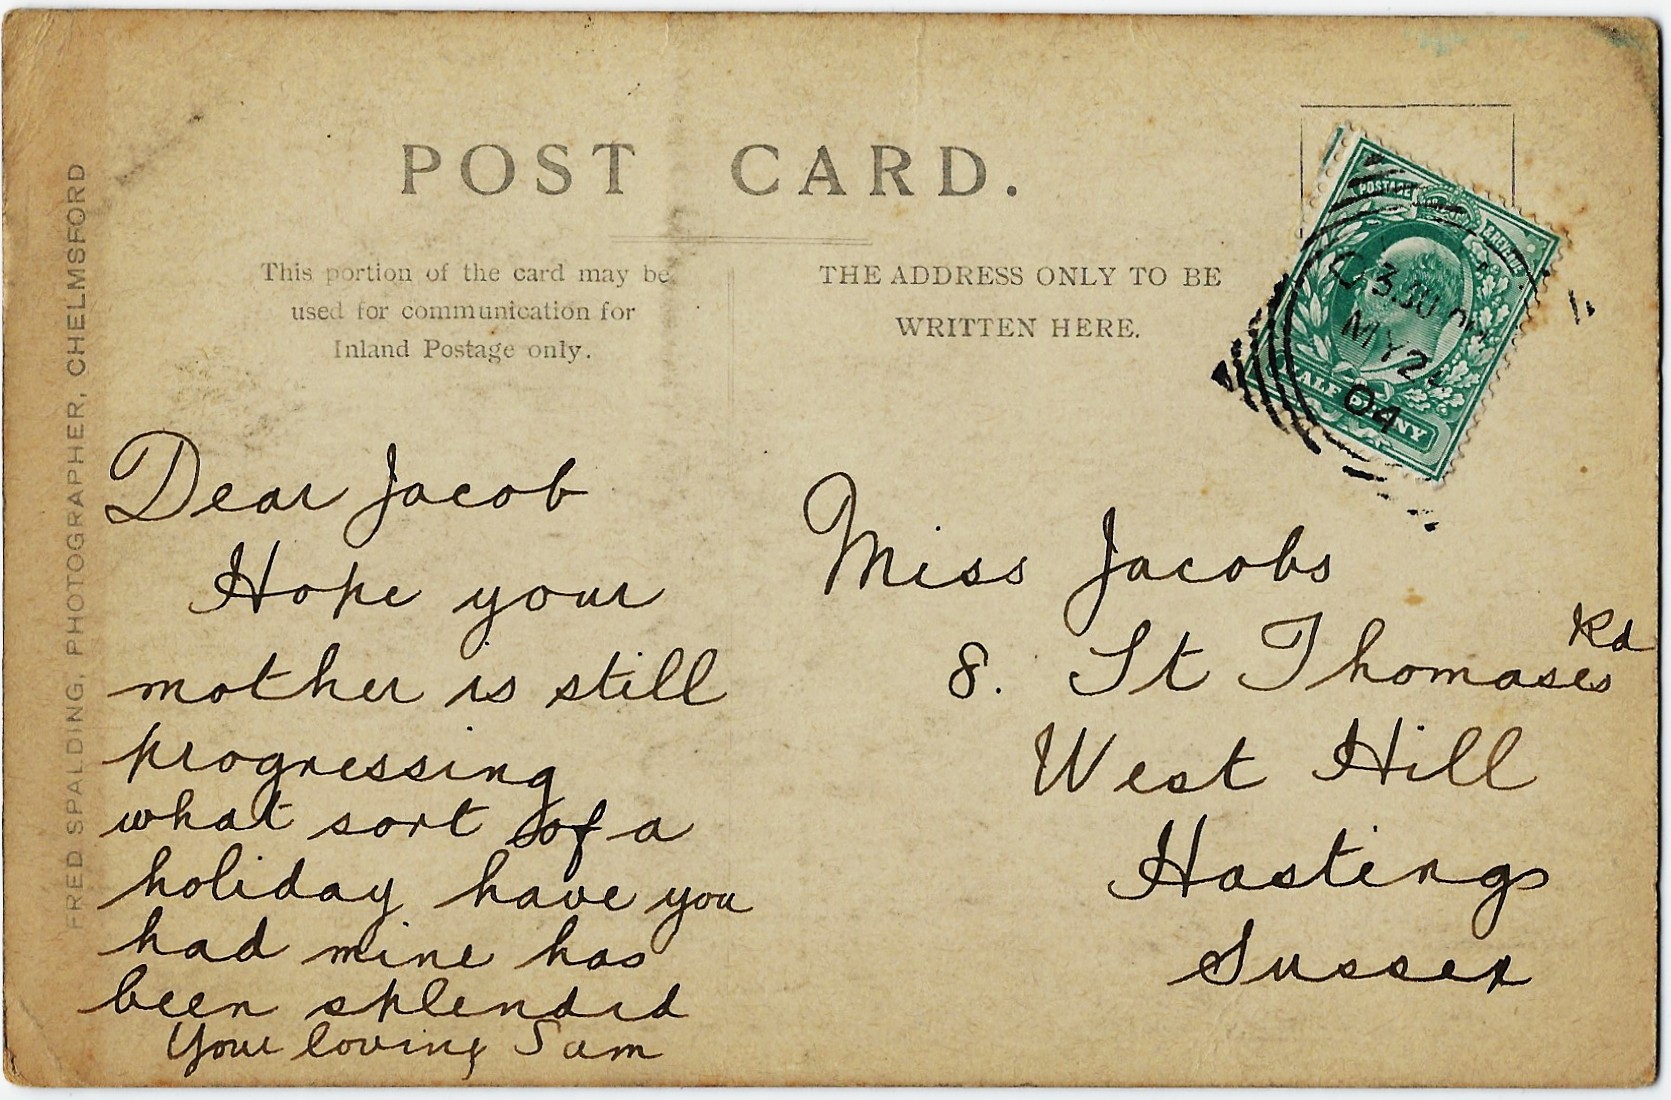 POST CARD.
This portion of the card may be
used for communication for
Inland Postage only.
THE ADDRESS ONLY TO BE
WRITTEN HERE.
FRED SPALDING, PHOTOGRAPHER, CHELMSFORD
POSTAGE & REVENUE
HALF PENNY
MY 2
04
Dear Jacob
Hope your
mother is still
progressing
what sort of a
holiday have you
had mine has
been splendid
Your loving Sam
Miss Jacobs
8. St Thomases Rd
West Hill
Hastings
Sussex